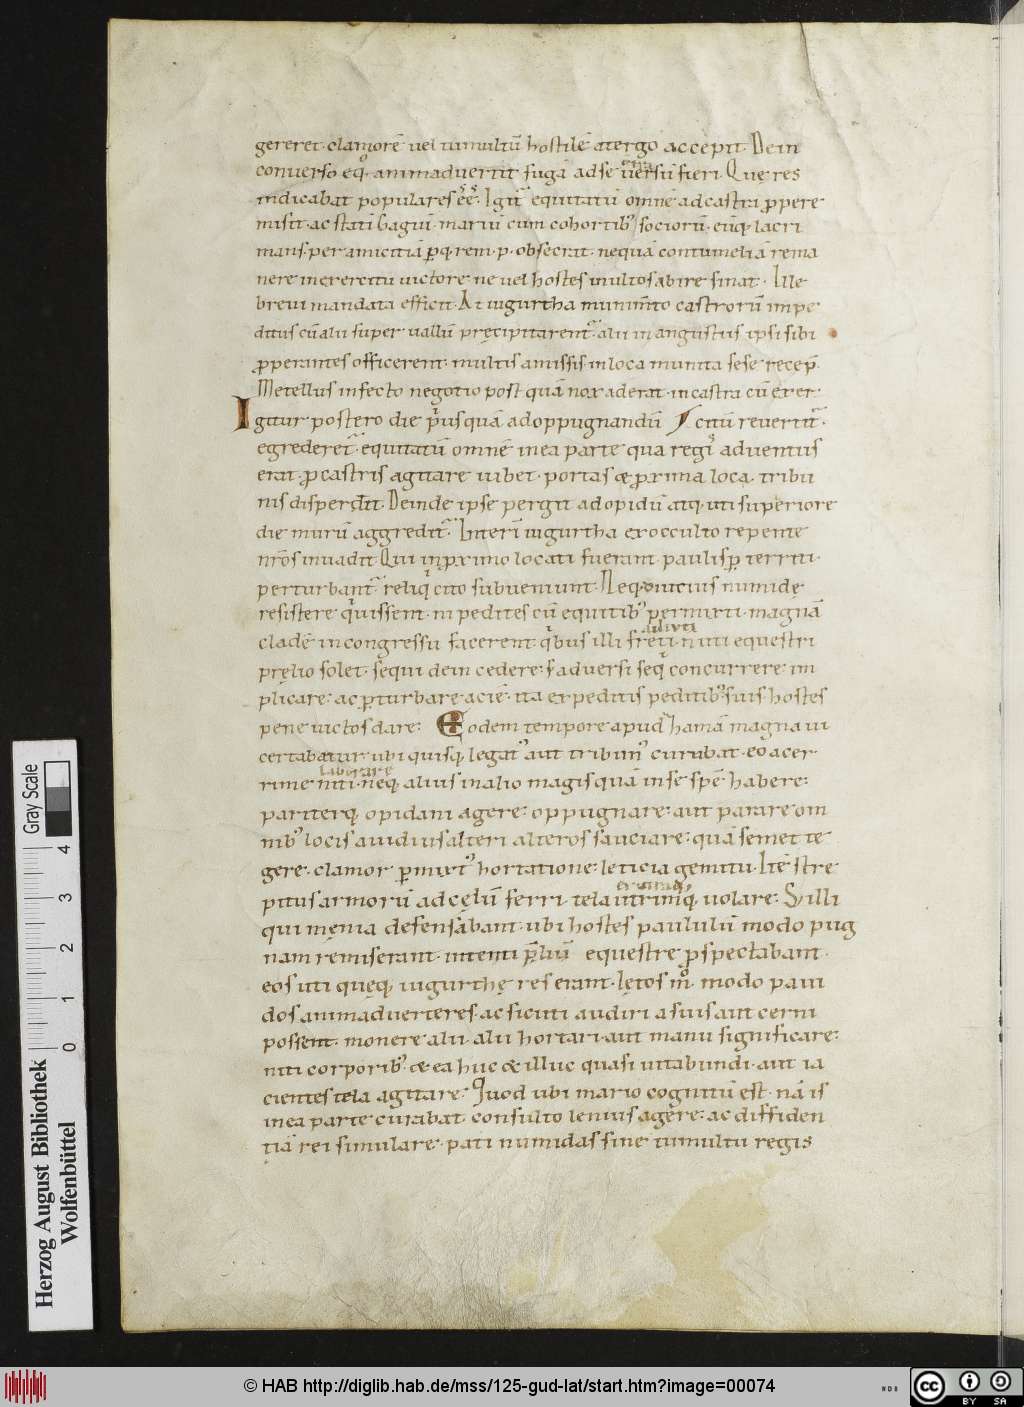 gereret. clamorē uel tumultū hostilē atergo accepit. Dein
conuerso eq̊. animaduertit fugā adse uersū fieri. Que res
indicabat populares eē̊. Igit̃ equitatū omnē adcastra ꝓpere
misit. ac statī Gaguī. mariū cum cohortib; sociorū. eūq; lacri
mans. per amicitiā ꝑq; rem .p. obsecrat. nequā contumeliā rema
nere inexercitu uictore ne uel hostes inultos abire sinat. Ille
breui mandata efficit. At iugurtha munim̄to castrorū impe
ditus cū alii super uallū precipitarent̃. alii in angustiis ipsi sibi
ꝓperantes officerent. multis amissis. inloca munita sese recep̄.
Metellus infecto negotio post quā nox aderat. incastra cū exer
Igitur postero die p̃usquā adoppugnandū citū reuertit̃.
egrederet̃. equitatū omnē inea parte qua regi᷒ aduentus
erat. ꝓ castris agitare iubet. portas & ꝓxima loca. tribu
nis disperdit. Deinde ipse pergit adopidū atq; uti superiore
die murū aggredit̃. Interī iugurtha exocculto repente
nr̄os inuadit Qui inꝓximo locati fuerant. paulisꝑ territi.
perturbant̃ reliq cito subueniunt. Neq; diutius numidę
resistere quissent. ni pedites cū equitib; permixti. magnā
cladē incongressu facerent. qbus illi freti
adiuti
niti equestri
pręlio solet. sequi dein cedere: s; aduersi seq concurrere im
plicare: ac ꝑturbare aciē. ita expeditis peditib; suis hostes
pene uictos dare: Eodem tempore apud hamā magna ui
certabatur ubi quisq; legat᷒ aut tribun᷒ curabat. eo acer
laborare
rime niti. neq; alius inalio magisquā inse spē habere:
pariterq; opidani agere: oppugnare: aut parare om
nib; locis auidius alteri alteros sauciare: quā semet te
gere. clamor ꝑmixt᷒ hortatione: leticia gemitu. Itē stre
pitus armorū adcęlū ferri. tela utrimq; uolare: S; illi
qui męnia defensabant. ubi hostes paululū modo pug
nam remiserant. intenti p̄liū equestre ꝓspectabant.
eos uti queq; iugurthę res erant. lętos m̊. modo paui
dos animaduerteres. ac sicuti audiri asuis aut cerni
possent. monere alii. alii hortari. aut manu significare:
niti corporib;. & ea huc & illuc quasi uitabundi. aut ia
cientes tela agitare: Quod ubi mario cognitū est. nā is
inea parte curabat. consulto lenius agere: ac diffiden
tiā rei simulare. pati numidas sine tumultu regis
Gray Scale
0 1 2 3 4
Herzog August Bibliothek
Wolfenbüttel
© HAB http://diglib.hab.de/mss/125-gud-lat/start.htm?image=00074
cc BY SA